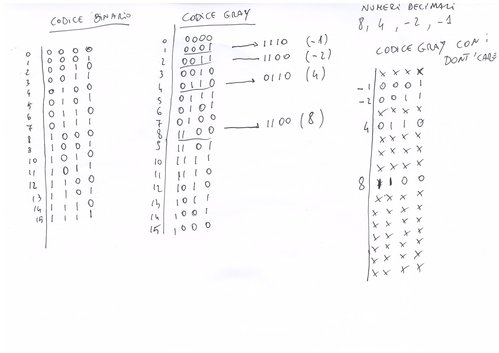 CODICE BINARIO
0 0 0 0 0
1 0 0 0 1
2 0 0 1 0
3 0 0 1 1
4 0 1 0 0
5 0 1 0 1
6 0 1 1 0
7 0 1 1 1
8 1 0 0 0
9 1 0 0 1
10 1 0 1 0
11 1 0 1 1
12 1 1 0 0
13 1 1 0 1
14 1 1 1 0
15 1 1 1 1
CODICE GRAY
0 0000
1 0001 → 1110 (-1)
2 0011 → 1100 (-2)
3 0010
4 0110 → 0110 (4)
5 0111
6 0101
7 0100
8 1100 → 1100 (8)
9 1101
10 1111
11 1110
12 1010
13 1011
14 1001
15 1000
NUMERI DECIMALI
8, 4, -2, -1
CODICE GRAY CON i
DONT'CARE
x x x x
-1 0 0 0 1
-2 0 0 1 1
x x x x
4 0 1 1 0
x x x x
x x x x
x x x x
8 1 1 0 0
x x x x
x x x x
x x x x
x x x x
x x x x
x x x x
x x x x